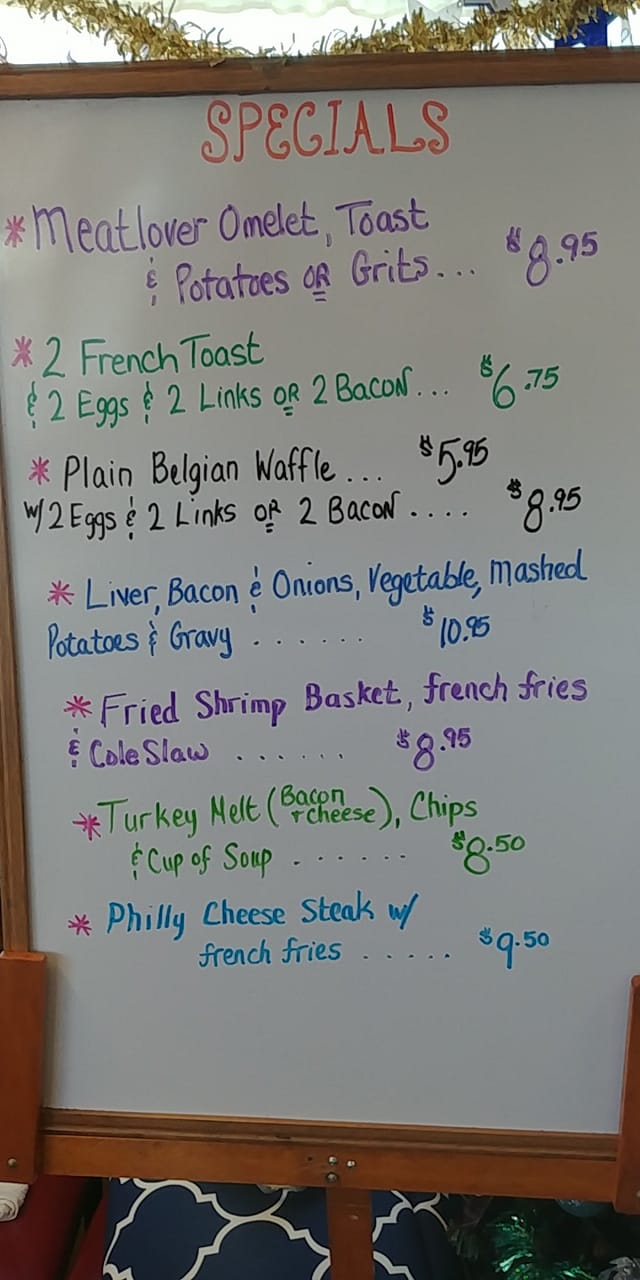 SPECIALS
* Meatlover Omelet, Toast
& Potatoes OR Grits... $8.95
* 2 French Toast
& 2 Eggs & 2 Links OR 2 Bacon... $6.75
* Plain Belgian Waffle... $5.95
w/ 2 Eggs & 2 Links OR 2 Bacon.... $8.95
* Liver, Bacon & Onions, Vegetable, Mashed
Potatoes & Gravy ....... $10.95
* Fried Shrimp Basket, french fries
& Cole Slaw ...... $8.95
* Turkey Melt (Bacon + cheese), Chips
& Cup of Soup ...... $8.50
* Philly Cheese Steak w/
french fries ..... $9.50